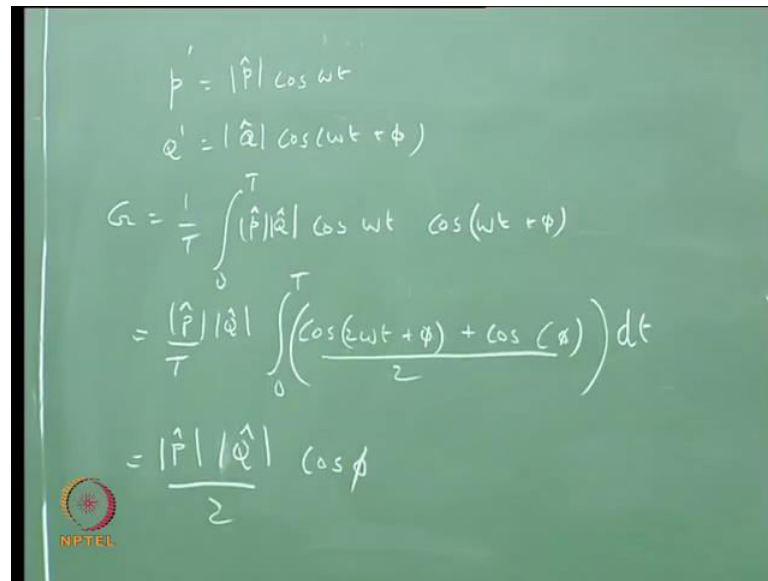 p' = |P̂| cos ωt
Q' = |Q̂| cos(ωt + φ)
G = 1/T ∫₀ᵀ |P̂||Q̂| cos ωt cos(ωt + φ)
= |P̂||Q̂|/T ∫₀ᵀ ((cos(2ωt + φ) + cos(φ))/2) dt
= |P̂||Q̂|/2 cos φ
NPTEL